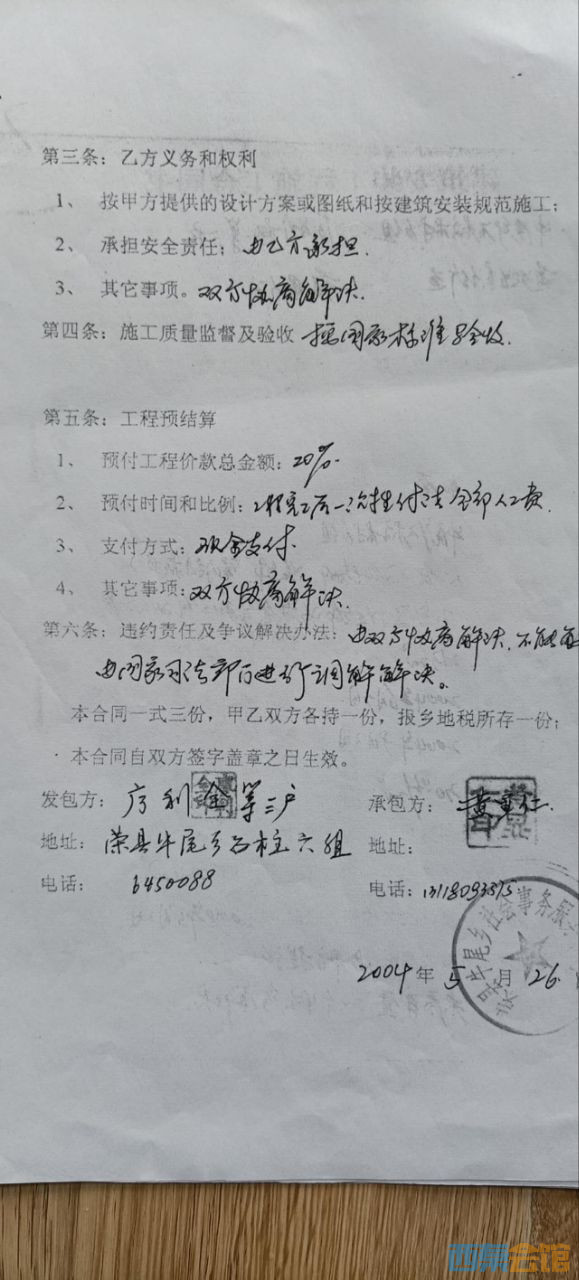 第三条：乙方义务和权利
1、 按甲方提供的设计方案或图纸和按建筑安装规范施工；
2、 承担安全责任：由乙方承担.
3、 其它事项。双方协商解决.
第四条：施工质量监督及验收 按国家标准验收.
第五条：工程预结算
1、 预付工程价款总金额：20%.
2、 预付时间和比例：工程完工后一次性付清全部人工费.
3、 支付方式：现金支付.
4、 其它事项：双方协商解决.
第六条：违约责任及争议解决办法：由双方协商解决.不能
由国家司法部门进行调解解决。
本合同一式三份，甲乙双方各持一份，报乡地税所存一份；
本合同自双方签字盖章之日生效。
发包方： 利金等三户 承包方：黄
地址：荣县牛尾乡石柱六组 地址：
电话：6450088 电话：
牛尾乡社会事务服
2004年5月26
西票会馆